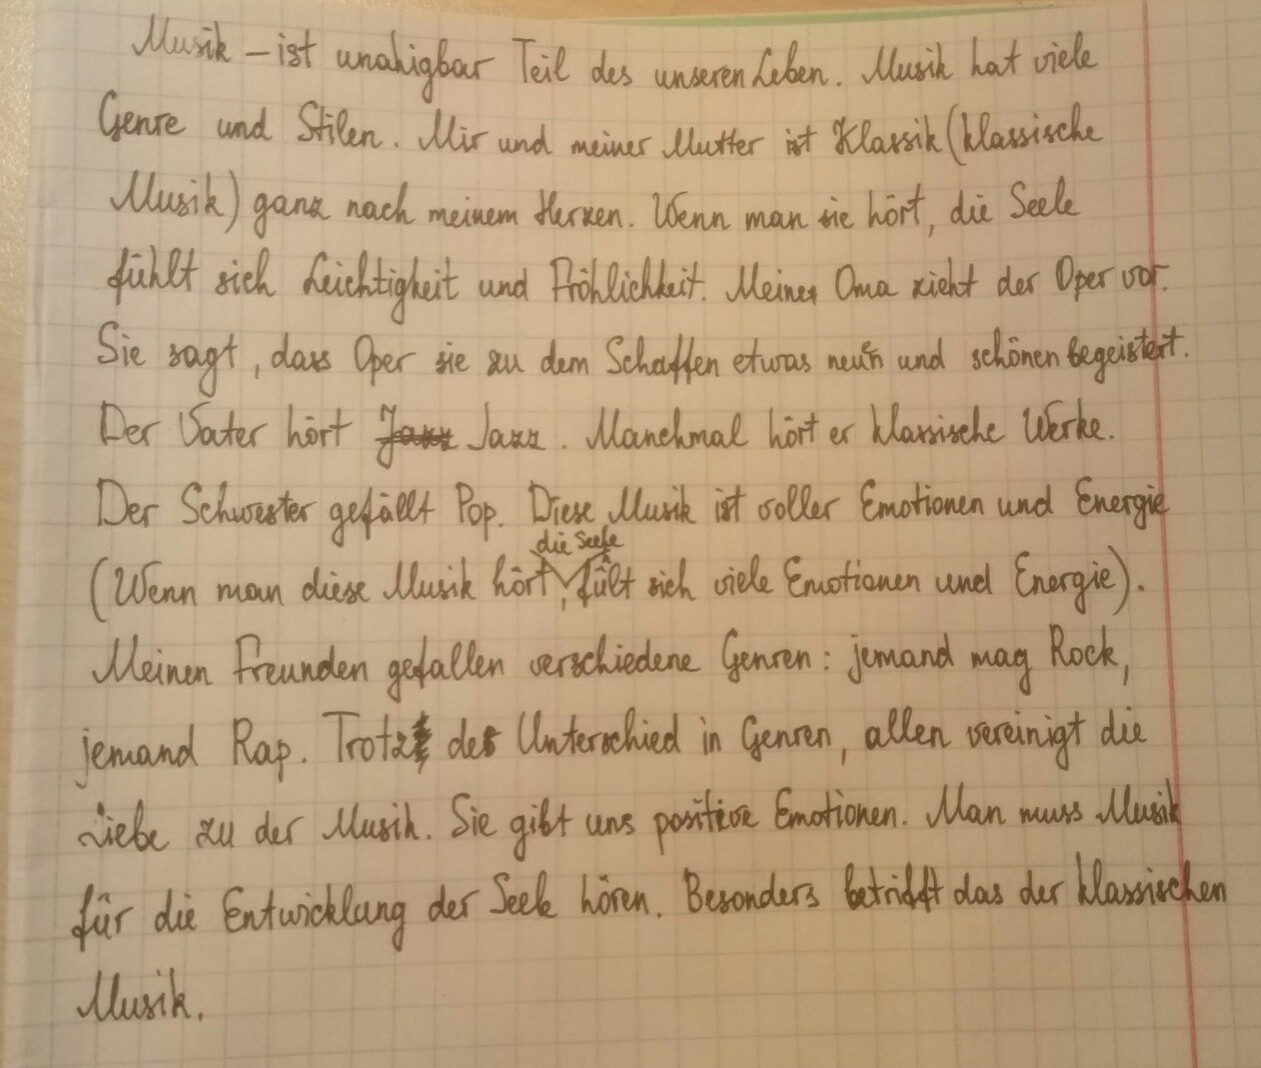 Musik – ist unahigbar Teil des unseren Leben. Musik hat viele
Genre und Stilen. Mir und meiner Mutter ist Klassik (klassische
Musik) ganz nach meinem Herzen. Wenn man sie hört, die Seele
fühlt sich Leichtigkeit und Fröhlichkeit. Meine Oma zieht der Oper vor.
Sie sagt, dass Oper sie zu dem Schaffen etwas neuen und schönen begeistert.
Der Vater hört Jazz Jazz. Manchmal hört er klassische Werke.
Der Schwester gefällt Pop. Diese Musik ist voller Emotionen und Energie
die Seele
(Wenn man diese Musik hört, fült sich viele Emotionen und Energie).
Meinen Freunden gefallen verschiedene Genren: jemand mag Rock,
jemand Rap. Trotz des Unterschied in Genren, allen vereinigt die
Liebe zu der Musik. Sie gibt uns positive Emotionen. Man muss Musik
für die Entwicklung der Seele hören. Besonders betrifft das der klassischen
Musik.